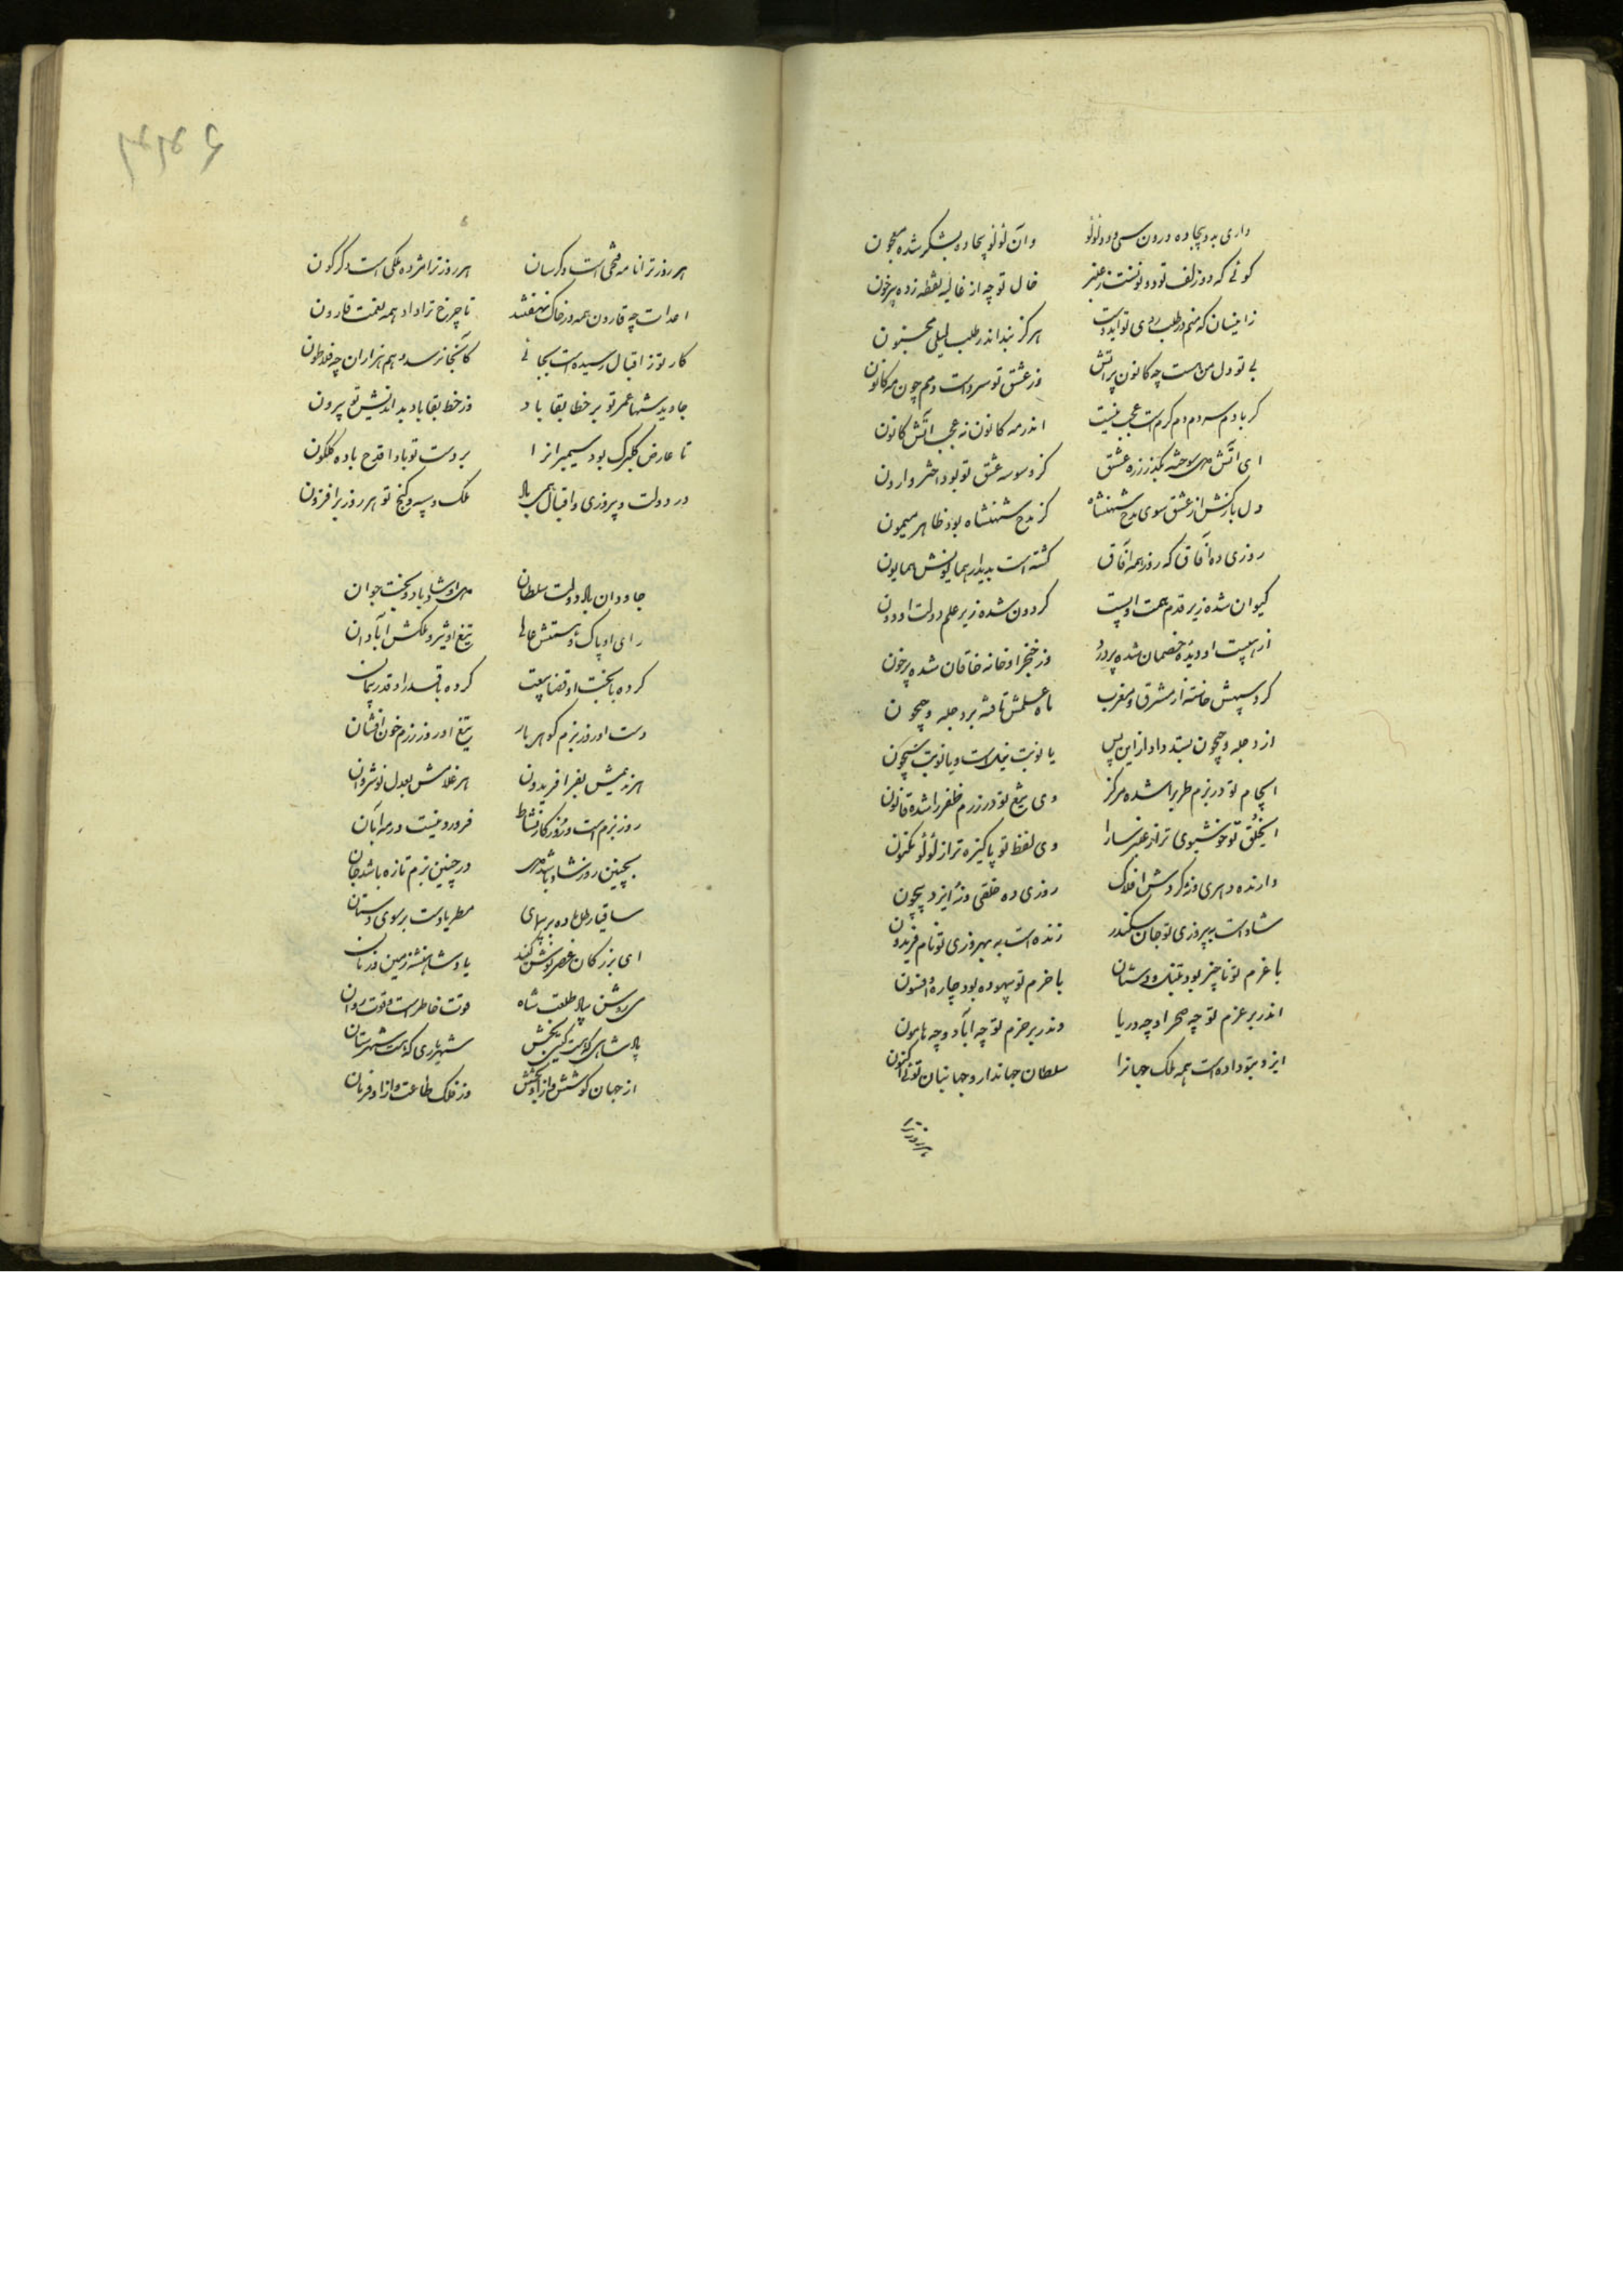 داری به دو بیجاده درون سی و دو لولو وان لولو بیجاده بشکر شده معجون
کوئی که دو زلف تو دو نونست ز عنبر خال تو چه از غالیه نقطه زده بر نون
زانسان که منم در طلب روی تو ایدوست هرکز نبد اندر طلب لیلی مجنون
بی تو دل من هست چه کانون پر اتش وز عشق تو سردست دمم چون مه کانون
کر با دم سردم دم کرمست عجب نیست اندر مه کانون نه عجب اتش کانون
ای اتش عشق کز وسوسه عشق تو بود اختر وارون
دل باز کش از عشق سوی مدح شهنشاه کز مدح شهنشاه بود طاهر میمون
روزی ده افاق که روز همه افاق کشته است بدیدار همایونش همایون
کیوان شده زیر قدم همت او پست کردون شده زیر علم دولت او دون
از هیبت او دیده خصمان شده پر درد وز خنجر او خانه خاقان شده پر خون
کرد سپهش خاسته از مشرق و مغرب ماه علمش تافته بر دجله و جیحون
از دجله و جیحون بستد داد ازین پس یا نوبت نیلست و یا نوبت سیحون
ایجام تو در بزم طرب را شده مرکز وی تیغ تو در رزم ظفر را شده قانون
ایخلق تو خوشبوی تر از عنبر سارا وی لفظ تو پاکیزه تر از لولو مکنون
دارنده دهری و نه کردش افلاک روزی ده خلقی و نه ایزد بیچون
شادست به پیروزی تو جان سکندر زنده است به بهروزی تو نام فریدون
با عزم تو ناچیز بود تنبل و دستان با حزم تو بیهوده بود چاره و افسون
اندر بر عزم تو چه صحرا و چه دریا وندر بر حزم تو چه اباد و چه هامون
ایزد بتو داده است همه ملک جهانرا سلطان جهاندار و جهانبان توئی اکنون
هر روز ترا
هر روز ترا نامه فتحی است دکرسان هر روز ترا مژده ملکی است دکرکون
اعدات چه قارون همه در خاک نهفتند تا چرخ ترا داد همه نعمت قارون
کار تو ز اقبال رسیده است بجائی کانجا نرسد وهم هزاران چه فلاطون
جاوید شها عمر تو بر خط بقا باد وز خط بقا باد بداندیش تو بیرون
تا عارض کلبرک بود سیمبرانرا بر دست تو بادا قدح باده کلکون
در دولت و پیروزی و اقبال همی ملک و سپه و کنج تو هر روز بر افزون
جاودان باد دولت سلطان شاد باد و بخت جوان
رای او پاک و همتش عالی تیغ او تیز و ملکش ابادان
کرده با بخت او قضا بیعت کرده با قدر او قدر پیمان
دست او روز بزم کوهر بار تیغ او روز رزم خون افشان
هر ندیمش بفر افریدون هر غلامش بعدل نوشروان
روز بزم است و روزکار نشاط فرودینست در مه ابان
بچنین روز شاد باشد در چنین بزم تازه باشد جان
ساقیا رطل باده بر مطربا دست بر سوی دستان
ای بزرکان عصر نوش کنید یاد شاهنشه زمین و زمان
می روشن بیاد طلعت شاه قوت خاطر است و قوت روان
شهریاری که
از جهان کوشش و از او بخشش وز فلک طاعت و از او فرمان